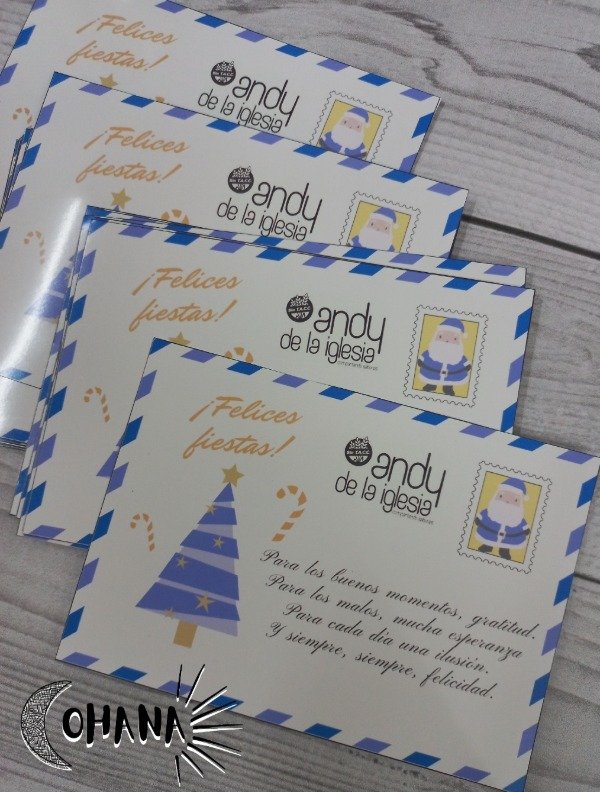 ¡Felices
fiestas!
Sin T.A.C.C.
andy
de la iglesia
¡Felices
fiestas!
Sin T.A.C.C.
andy
de la iglesia
¡Felices
fiestas!
Sin T.A.C.C.
andy
de la iglesia
compartiendo sabores
¡Felices
fiestas!
Sin T.A.C.C.
andy
de la iglesia
compartiendo sabores
Para los buenos momentos, gratitud.
Para los malos, mucha esperanza
Para cada día una ilusión.
Y siempre, siempre, felicidad.
OHANA